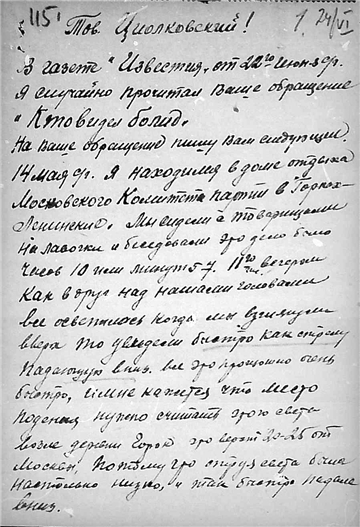 115 1. 24/VI
Тов. Циолковский!
В газете "Известия" от 22го июня с/г.
я случайно прочитал Ваше обращение
"Кто видел болид".
На Ваше обращение пишу Вам следующее.
14 мая с/г. я находился в доме отдыха
Московского Комитета партии в Горках-
Ленинских. Мы сидели с товарищами
на лавочки и беседовали это дело было
часов 10 или минут 5-7 11го вечером
как вдруг над нашими головами
все осветилось когда мы взглянули
вверх то увидели быстро как стрелу
падающую вниз. все это произошло очень
быстро, и мне кажется что место
падения нужно считать этого света
возле деревни Горок это верст 20-25 от
Москвы, потому что струя света была
настолько низко, и так быстро падала
вниз.